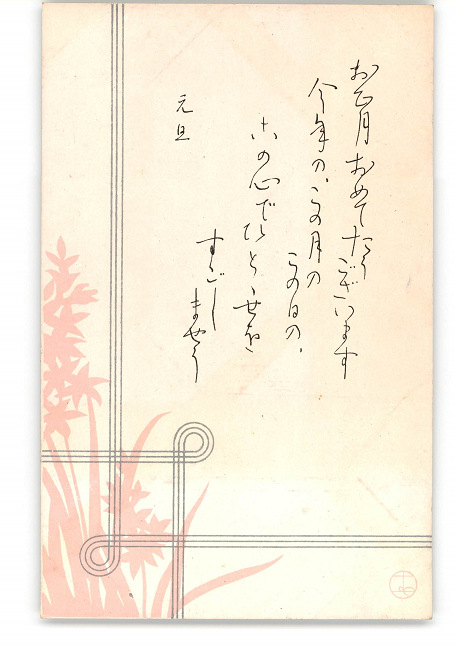 お正月おめでたうございます
今年の、この月の
この日の、
この心でひとゝせを
すごし
ませう
元旦